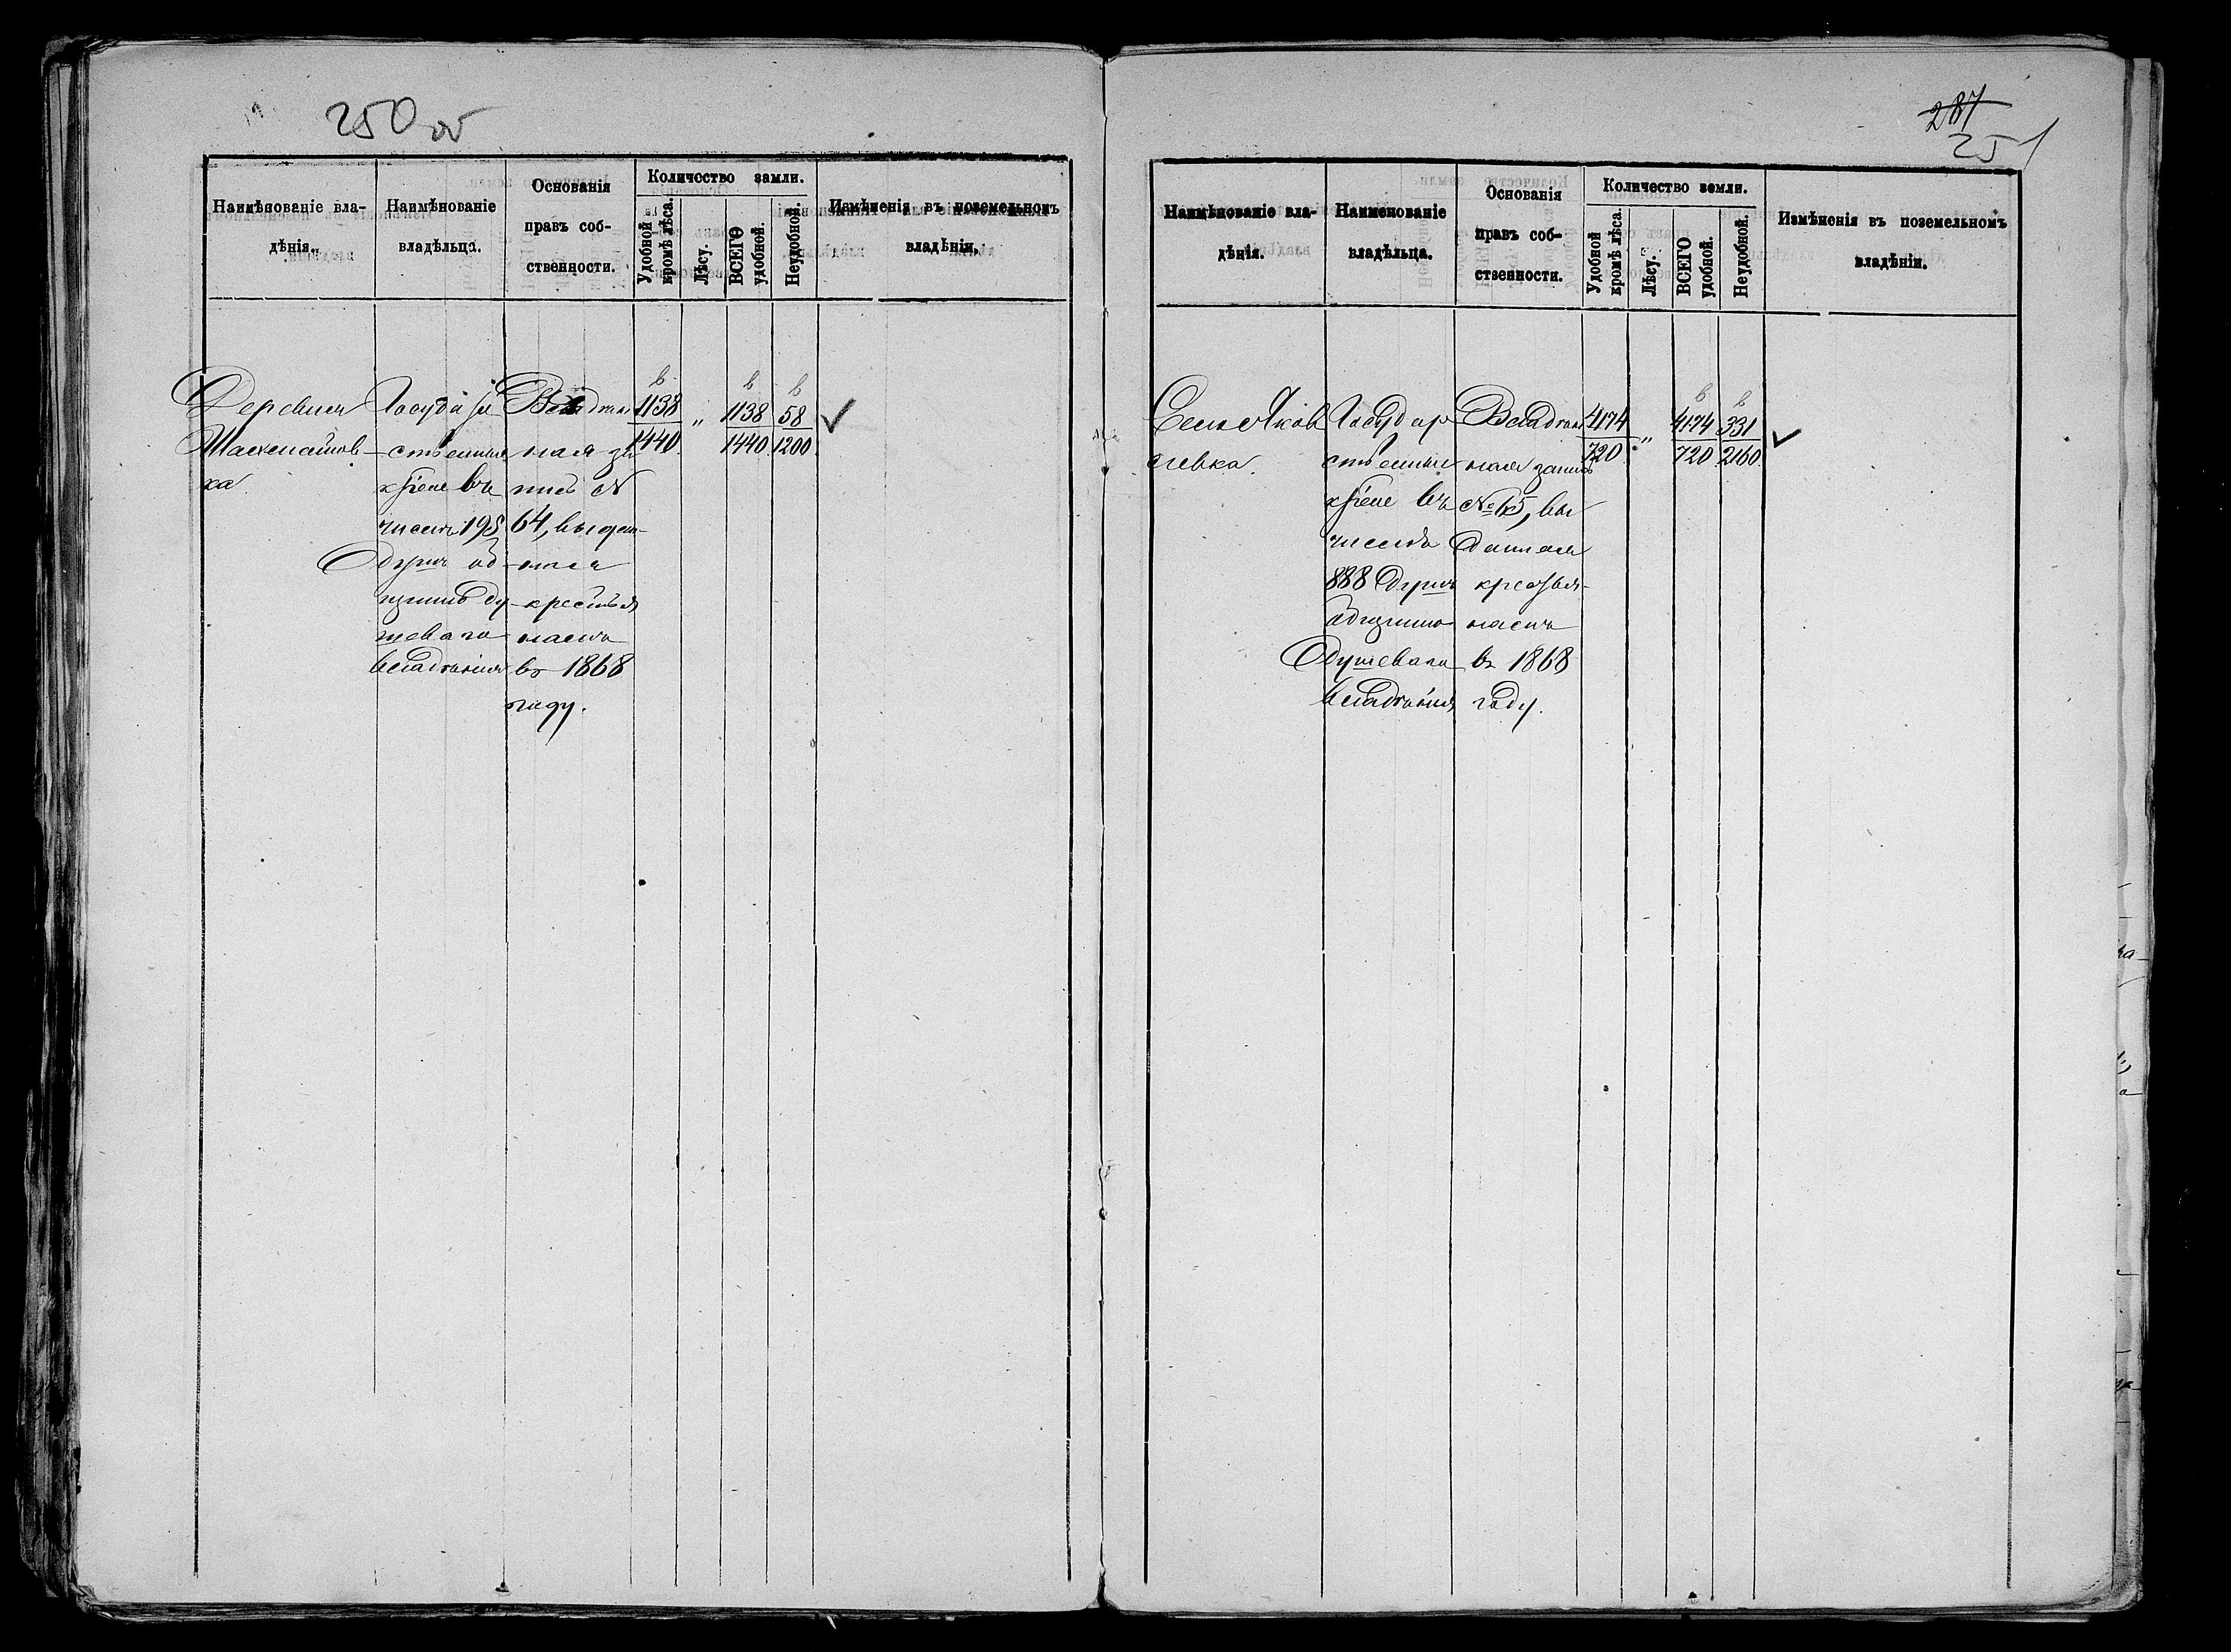 250 об
Наимѣнованіе вла-
дѣнія.
Наимѣнованіе
владѣльца.
Основанія
правъ соб-
ственности.
Количество земли.
Удобной
кромѣ лѣса.
Лѣсу.
ВСЕГО
удобной.
Неудобной.
Измѣненія въ поземельномъ
владѣніи.
Деревня
ка
Государ
ственные
крѣне въ
числѣ 195
душъ об
щинно ду-
шеваго
владѣнія
Владѣн
ная за
пись №
64, выдан-
ная
крестья
намъ
въ 1868
году.
1138
1440
"
1138
1440
58
1200
287
251
Наимѣнованіе вла-
дѣнія.
Наименованіе
владѣльца.
Основанія
правъ соб-
ственности.
Количество земли.
Удобной
кромѣ лѣса.
Лѣсу.
ВСЕГО
удобной.
Неудобной.
Измѣненія въ поземельномъ
владѣніи.
Село Яков
левка.
Государ
ственные
крѣне въ
числѣ
888 душъ
общинно
душевого
владѣнія
Владѣн
ная запись
№ 65, вы
данная
крестья-
намъ
въ 1868
году.
4174
720
"
4174
720
331
2160